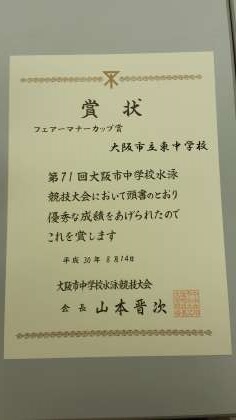 賞状
フェアーマナーカップ賞
大阪市立東中学校
第71回大阪市中学校水泳
競技大会において頭書のとおり
優秀な成績をあげられたので
これを賞します
平成30年8月14日
大阪市中学校水泳競技大会
会長 山本晋次